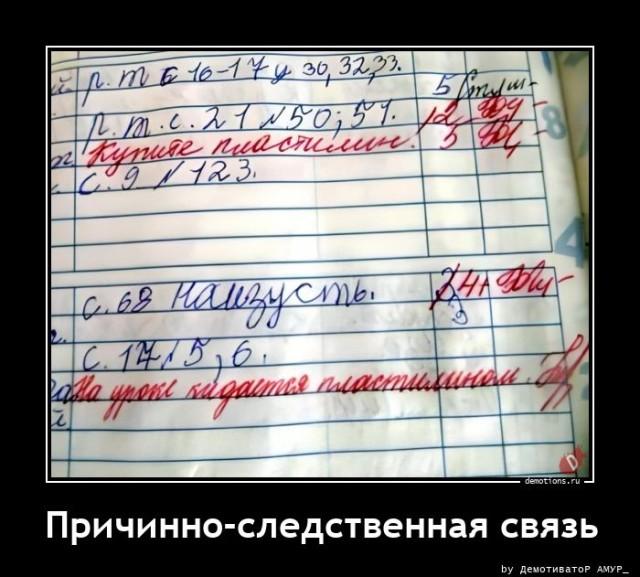 р. т с 16-17 у 30, 32, 33.
5
р. т. с. 21 № 50; 51.
Купите пластилин! 5
с. 9 № 123.
с. 68 наизусть.
3
с. 17 № 5, 6.
На уроке кидается пластилином.
demotions.ru
Причинно-следственная связь
by ДемотиватоР АМУР_